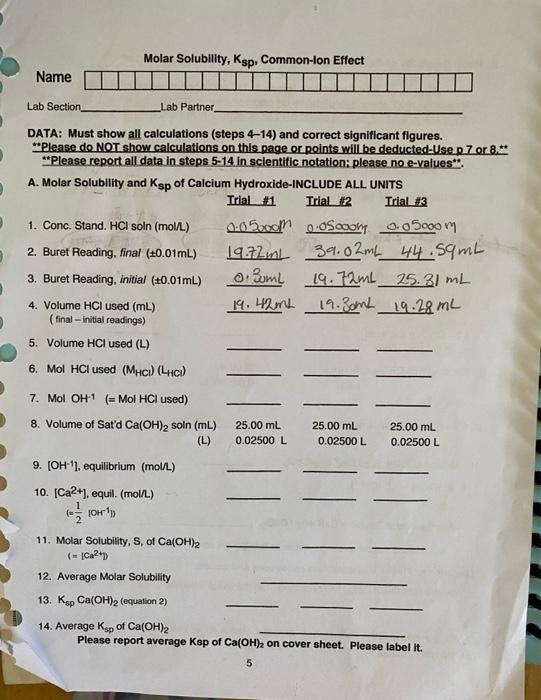 Molar Solubility, Ksp, Common-Ion Effect
Name
Lab Section Lab Partner
DATA: Must show all calculations (steps 4–14) and correct significant figures.
**Please do NOT show calculations on this page or points will be deducted-Use p 7 or 8.**
**Please report all data in steps 5-14 in scientific notation; please no e-values**.
A. Molar Solubility and Ksp of Calcium Hydroxide-INCLUDE ALL UNITS
Trial #1 Trial #2 Trial #3
1. Conc. Stand. HCl soln (mol/L) 0.05000M 0.05000M 0.05000M
2. Buret Reading, final (±0.01mL) 19.72mL 39.02mL 44.59mL
3. Buret Reading, initial (±0.01mL) 0.30mL 19.72mL 25.31 mL
4. Volume HCl used (mL) 19.42mL 19.30mL 19.28 mL
( final – initial readings)
5. Volume HCl used (L)
6. Mol HCl used (MHCl) (LHCl)
7. Mol OH-1 (= Mol HCl used)
8. Volume of Sat'd Ca(OH)2 soln (mL) 25.00 mL 25.00 mL 25.00 mL
(L) 0.02500 L 0.02500 L 0.02500 L
9. [OH-1], equilibrium (mol/L)
10. [Ca2+], equil. (mol/L)
(= 1/2 [OH-1])
11. Molar Solubility, S, of Ca(OH)2
(= [Ca2+])
12. Average Molar Solubility
13. Ksp Ca(OH)2 (equation 2)
14. Average Ksp of Ca(OH)2
Please report average Ksp of Ca(OH)2 on cover sheet. Please label it.
5